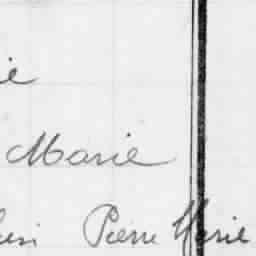 ie
Marie
Pierre Marie